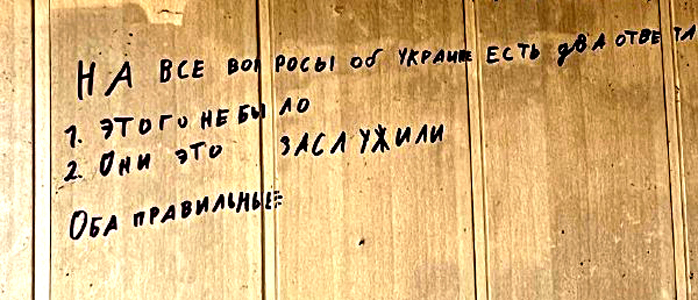 НА ВСЕ ВОПРОСЫ ОБ УКРАИНЕ ЕСТЬ ДВА ОТВЕТА
1. ЭТОГО НЕ БЫЛО
2. ОНИ ЭТО ЗАСЛУЖИЛИ
ОБА ПРАВИЛЬНЫЕ